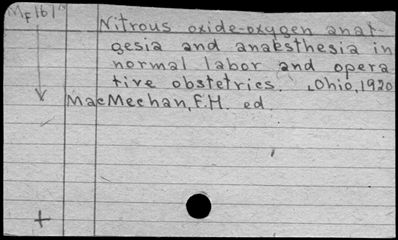 MF161
Nitrous oxide-oxygen anal-
gesia and anaesthesia in
normal labor and opera
tive obstetrics. Ohio, 1920
MacMechan, F.H. ed.